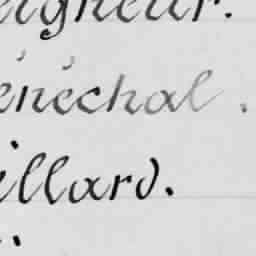 eigneur.
énéchal.
illard.